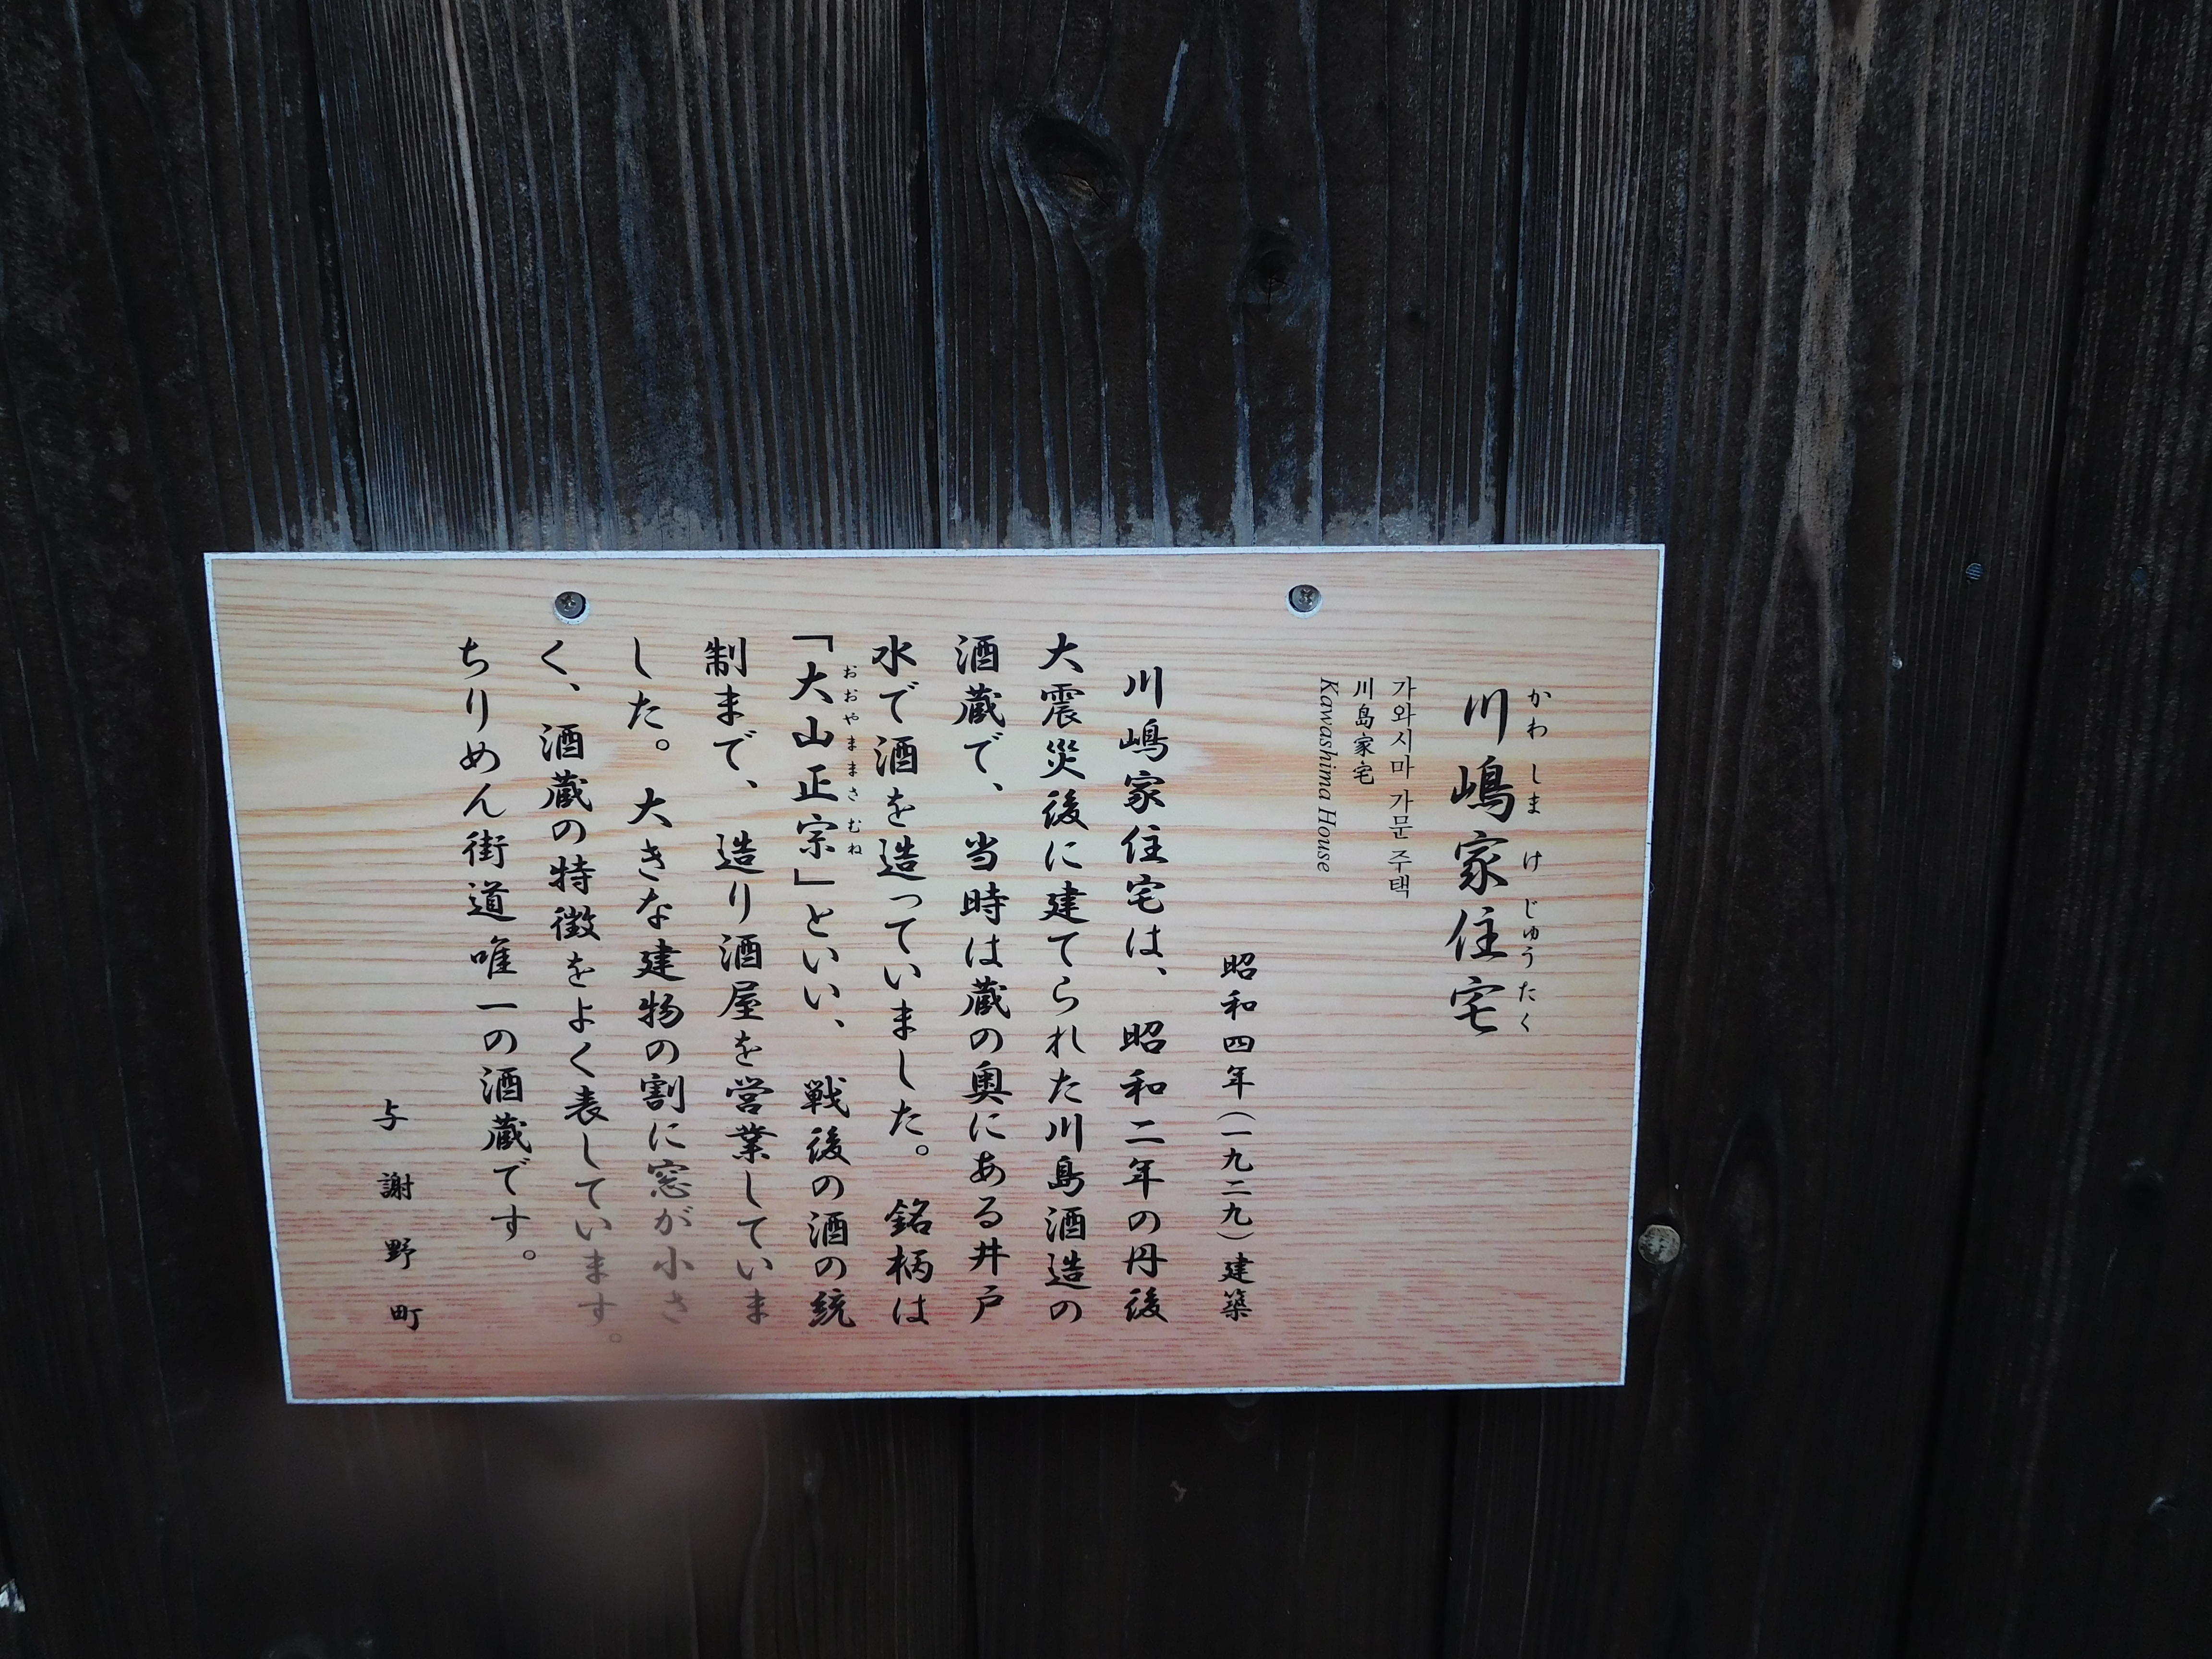 川嶋家住宅
かわしまけじゅうたく
가와시마 가문 주택
川島家宅
Kawashima House
昭和四年(一九二九)建築
川嶋家住宅は、昭和二年の丹後
大震災後に建てられた川島酒造の
酒蔵で、当時は蔵の奥にある井戸
水で酒を造っていました。銘柄は
「大山正宗」といい、戦後の酒の統
おおやままさむね
制まで、造り酒屋を営業していま
した。大きな建物の割に窓が小さ
く、酒蔵の特徴をよく表しています。
ちりめん街道唯一の酒蔵です。
与謝野町